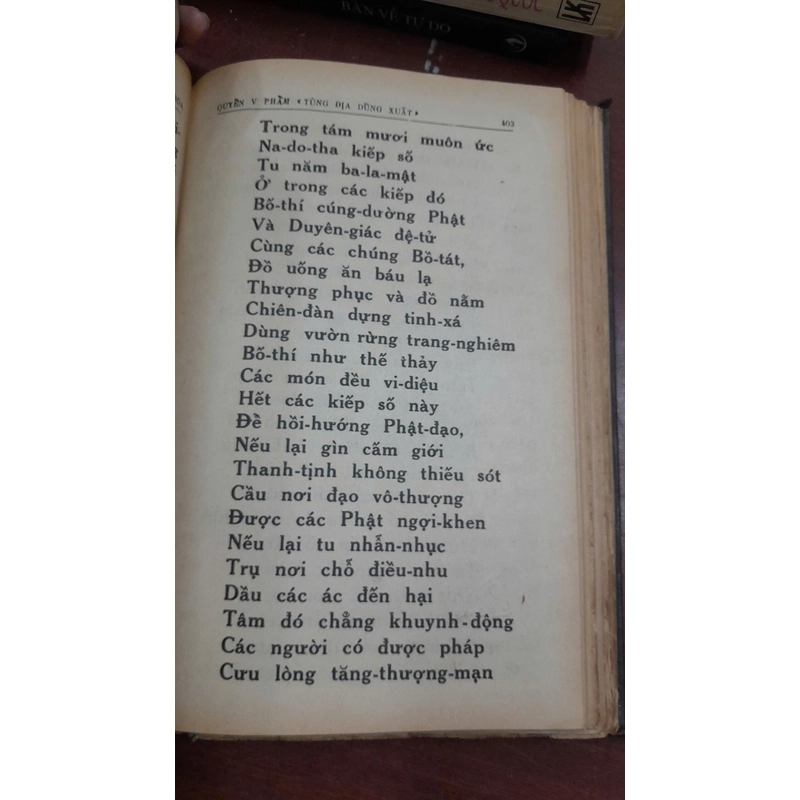 BÀN VỀ TỰ DO
QUYỂN V PHẨM «TÙNG ĐỊA DŨNG XUẤT»
403
Trong tám mươi muôn ức
Na-do-tha kiếp số
Tu năm ba-la-mật
Ở trong các kiếp đó
Bố-thí cúng-dường Phật
Và Duyên-giác đệ-tử
Cùng các chúng Bồ-tát,
Đồ uống ăn báu lạ
Thượng phục và đồ nằm
Chiên-đàn dựng tinh-xá
Dùng vườn rừng trang-nghiêm
Bố-thí như thế thảy
Các món đều vi-diệu
Hết các kiếp số này
Để hồi-hướng Phật-đạo,
Nếu lại gìn cấm giới
Thanh-tịnh không thiếu sót
Cầu nơi đạo vô-thượng
Được các Phật ngợi-khen
Nếu lại tu nhẫn-nhục
Trụ nơi chỗ điều-nhu
Dầu các ác đến hại
Tâm đó chẳng khuynh-động
Các người có được pháp
Cưu lòng tăng-thượng-mạn